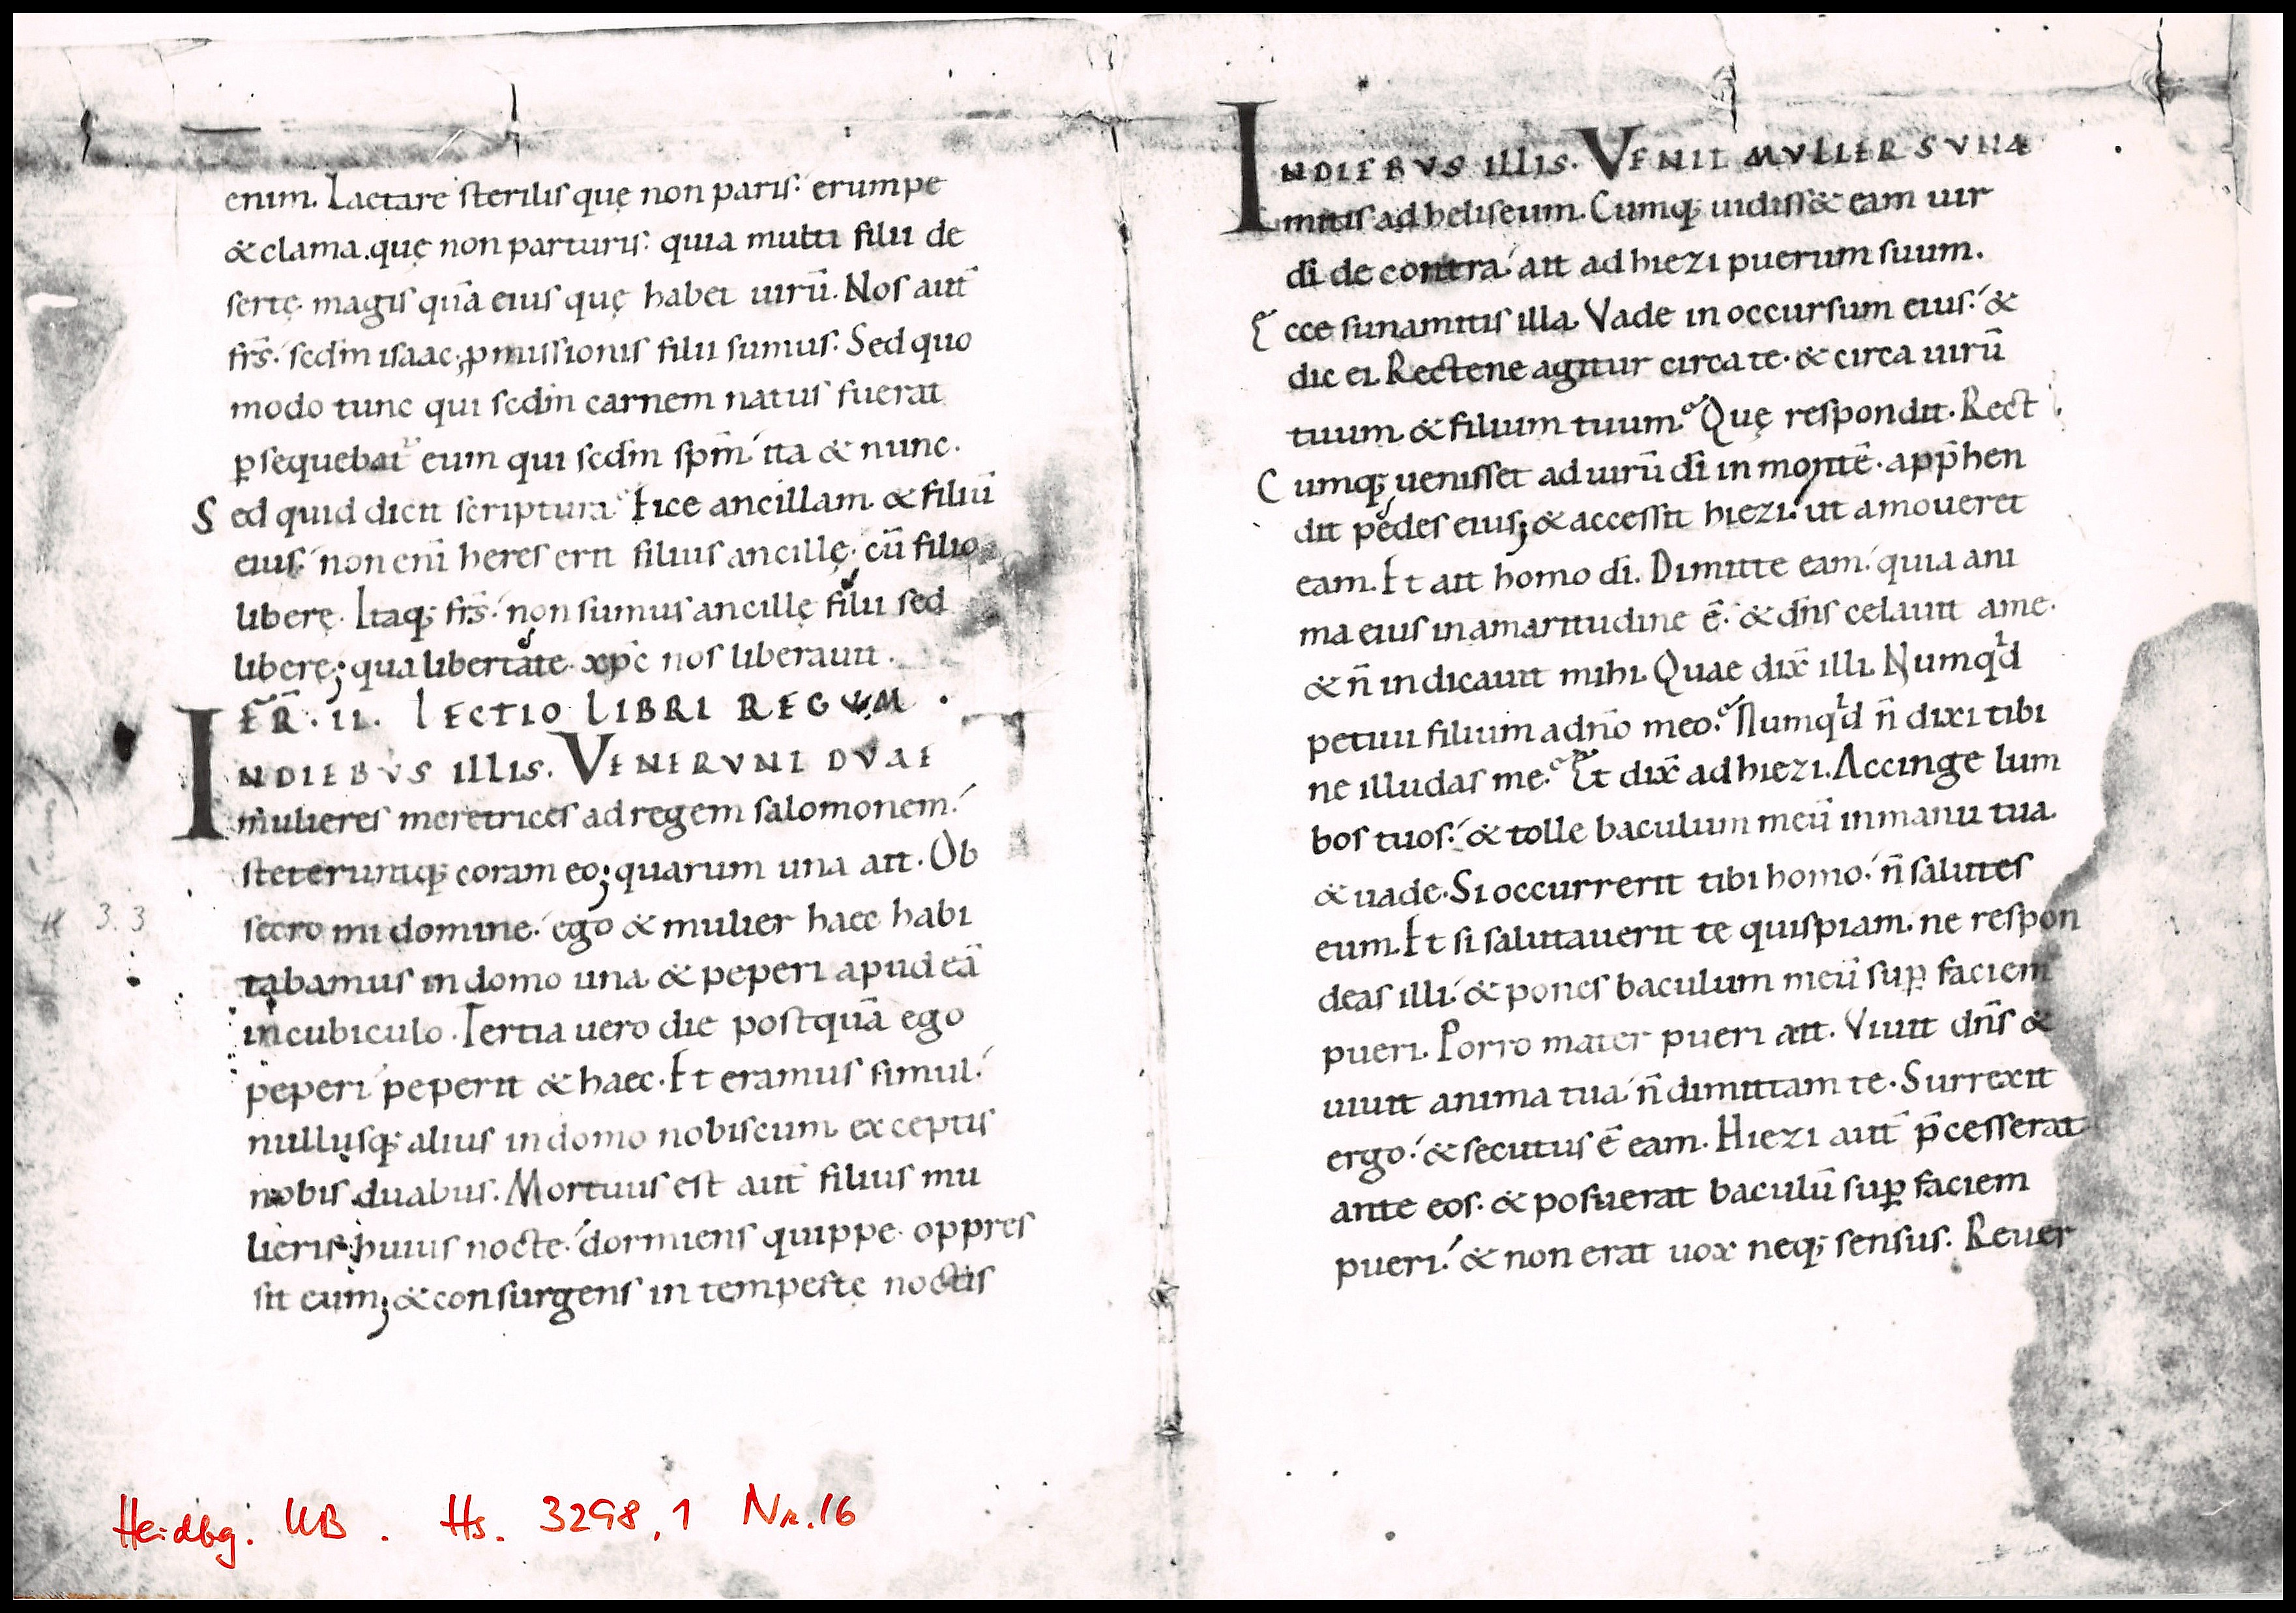 enim. Laetare sterilis quę non paris: erumpe
& clama. quę non parturis: quia multi filii de
sertę. magis quā eius quę habet uirū. Nos aut̄
fr̄s. scdm isaac; ꝓmissionis filii sumus. Sed quo
modo tunc qui scdm carnem natus fuerat
ꝑsequebat᷑ eum qui scdm sp̄m ita & nunc.
Sed quid dicit scriptura Eice ancillam. & filiū
eius. non enī heres erit filius ancillę. cū filio
liberę. Itaq; fr̄s. non sumus ancillę filii sed
liberę; qua libertate xp̄c nos liberauit.
FER̄. II. LECTIO LIBRI REGUM.
IN DIEBVS ILLIS. VENERVNT DVAE
mulieres meretrices ad regem salomonem.
steteruntq; coram eo; quarum una ait. Ob
secro mi domine. ego & mulier haec habi
tabamus in domo una. & peperi apud eā
in cubiculo. Tertia uero die postquā ego
peperi peperit & haec. Et eramus simul.
nullusq; alius in domo nobiscum. exceptis
nobis duabus. Mortuus est aut̄ filius mu
lieris huius nocte. dormiens quippe oppres
sit eum; & consurgens in tempestę noctis
IN DIEBVS ILLIS. VENIT MVLIER SVNA
mitis ad heliseum. Cumq; uidiss& eam uir
dī de contra. ait ad hiezi puerum suum.
Ecce sunamitis illa. Vade in occursum eius. &
dic ei. Rectene agitur circa te. & circa uirū
tuum. & filium tuum. Quę respondit. Rect
Cumq; uenisset ad uirū dī in montē. app̄hen
dit pedes eius; & accessit hiezi. ut amoueret
eam. Et ait homo dī. Dimitte eam. quia ani
ma eius in amaritudine ē. & dn̄s celauit a me.
& n̄ indicauit mihi. Quae dix̄ illi. Numqͥd
petiui filium a dn̄o meo. Numqͥd n̄ dixi tibi
ne illudas me. Et dix̄ ad hiezi. Accinge lum
bos tuos. & tolle baculum meū in manu tua.
& uade. Si occurrerit tibi homo. n̄ salutes
eum. Et si salutauerit te quispiam. ne respon
deas illi. & pones baculum meū suꝑ faciem
pueri. Porro mater pueri ait. Viuit dn̄s &
uiuit anima tua. n̄ dimittam te. Surrexit
ergo. & secutus ē eam. Hiezi aut̄ p̄cesserat
ante eos. & posuerat baculū suꝑ faciem
pueri. & non erat uox neq; sensus. Reuer
Heidbg. UB. Hs. 3298,1 Nr. 16